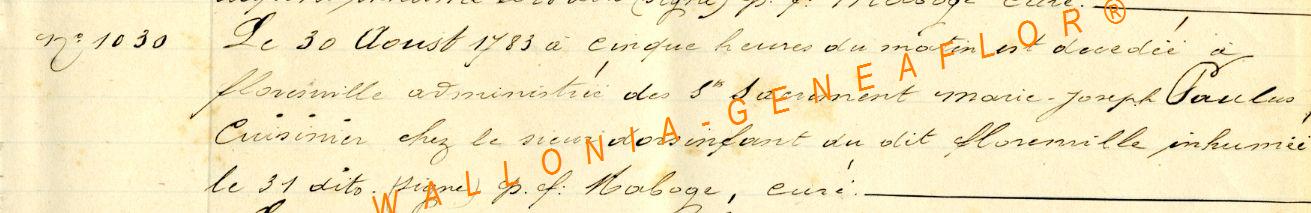 (signé) p. f. Maboge curé.
N° 1030 Le 30 Aoust 1783 à cinque heures du matin est decedée à
florenville administrée des Sts Sacrement marie-joseph Paulus,
Cuisinier chez le sieur dorsinfant du dit florenville inhumée
le 31 dito. (signé) p. f. Maboge, curé.
WALLONIA-GENEAFLOR®